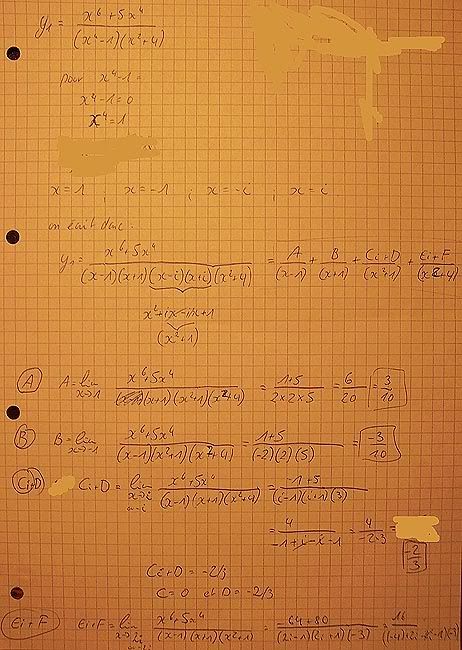 y₁ = (x⁶+5x⁴)/((x⁴-1)(x²+4))
pour x⁴-1=
x⁴-1=0
x⁴=1
x=1 ; x=-1 ; x=-i ; x=i
on écrit donc :
y₁= (x⁶+5x⁴)/((x-1)(x+1)(x-i)(x+i)(x²+4)) = A/(x-1) + B/(x+1) + (Ci+D)/(x²+1) + (Ei+F)/(x²+4)
x²+ix-ix+1
(x²+1)
Ⓐ A= lim x→1 (x⁶+5x⁴)/((x-1)(x+1)(x²+1)(x²+4)) = (1+5)/(2×2×5) = 6/20 = 3/10
Ⓑ B= lim x→-1 (x⁶+5x⁴)/((x-1)(x²+1)(x²+4)) = (1+5)/((-2)(2)(5)) = -3/10
Ci+D Ci+D = lim x→i (x⁶+5x⁴)/((x-1)(x+1)(x²+4)) = (-1+5)/((i-1)(i+1)(3))
= 4/(-1+i-i-1) = 4/(-2·3) =
-2/3
Ci+D = -2/3
C=0 et D=-2/3
Ei+F Ei+F= lim x→2i (x⁶+5x⁴)/((x-1)(x+1)(x²+1)) = (64+80)/((2i-1)(2i+1)(-3)) =